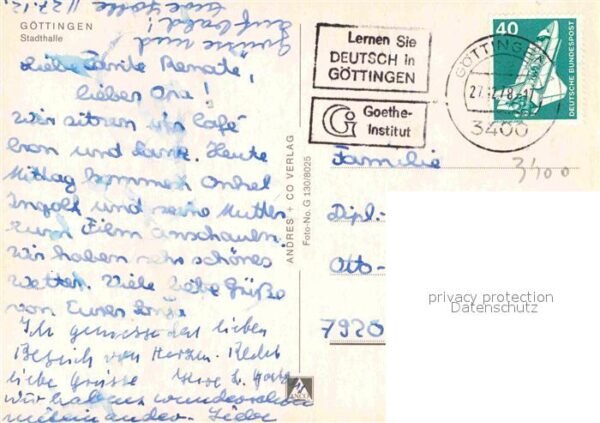 GÖTTINGEN
Stadthalle
Grüsse und
auf bald!
Eure Lotte
27.12.
Liebe Familie Renate,
lieber Ona!
Wir sitzen im Café
Kron und Lanz. Heute
Mittag kommen Onkel
Ingolf und seine Mutter
zum Film anschauen.
Wir haben sehr schönes
Wetter. Viele liebe Grüße
von Euren
Ich geniesse den lieben
Besuch von Herzen.
liebe Grüsse
Wir haben es wunderschön
miteinander. Liebe
ANDRES + CO VERLAG
Foto-No. G 130/8025
Lernen Sie
DEUTSCH in
GÖTTINGEN
Goethe-
Institut
GÖTTINGEN
27.12.78
3400
40
DEUTSCHE BUNDESPOST
3400
Familie
Dipl.-
Otto-
7920
privacy protection
Datenschutz
ANCO